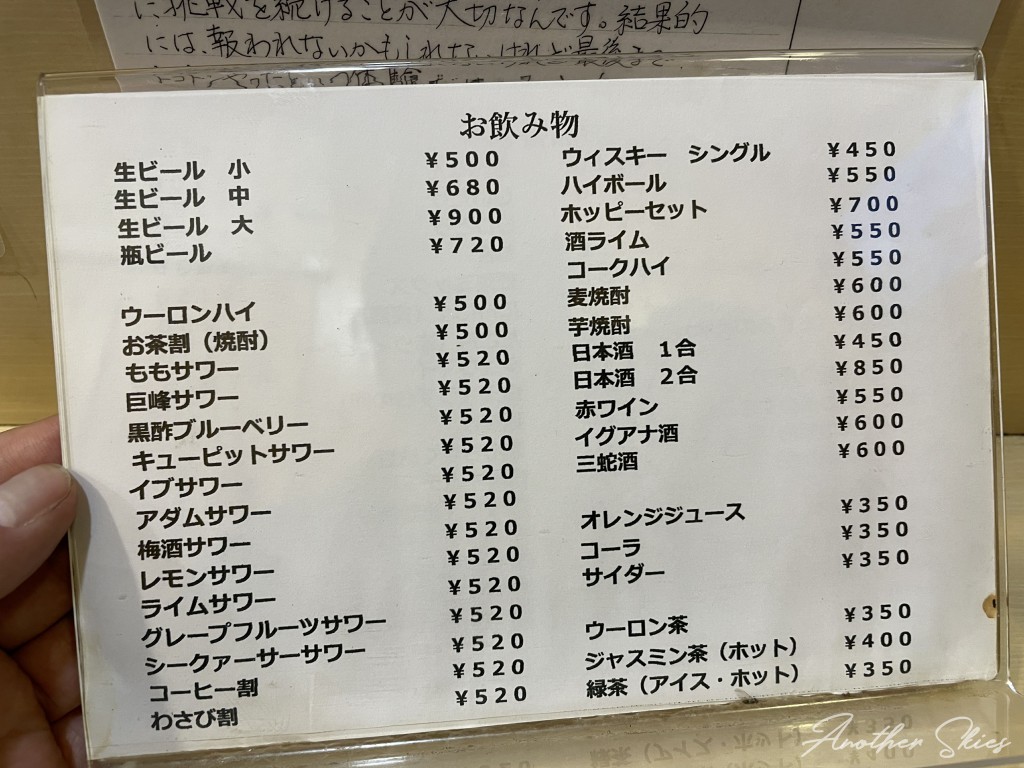 に挑戦を続けることが大切なんです。結果的
には、報われないかもしれな
お飲み物
生ビール　小 ¥500
生ビール　中 ¥680
生ビール　大 ¥900
瓶ビール ¥720
ウーロンハイ ¥500
お茶割（焼酎） ¥500
ももサワー ¥520
巨峰サワー ¥520
黒酢ブルーベリー ¥520
キューピットサワー ¥520
イブサワー ¥520
アダムサワー ¥520
梅酒サワー ¥520
レモンサワー ¥520
ライムサワー ¥520
グレープフルーツサワー ¥520
シークァーサーサワー ¥520
コーヒー割 ¥520
わさび割 ¥520
ウィスキー　シングル ¥450
ハイボール ¥550
ホッピーセット ¥700
酒ライム ¥550
コークハイ ¥550
麦焼酎 ¥600
芋焼酎 ¥600
日本酒　１合 ¥450
日本酒　２合 ¥850
赤ワイン ¥550
イグアナ酒 ¥600
三蛇酒 ¥600
オレンジジュース ¥350
コーラ ¥350
サイダー ¥350
ウーロン茶 ¥350
ジャスミン茶（ホット） ¥400
緑茶（アイス・ホット） ¥350
Another Skies